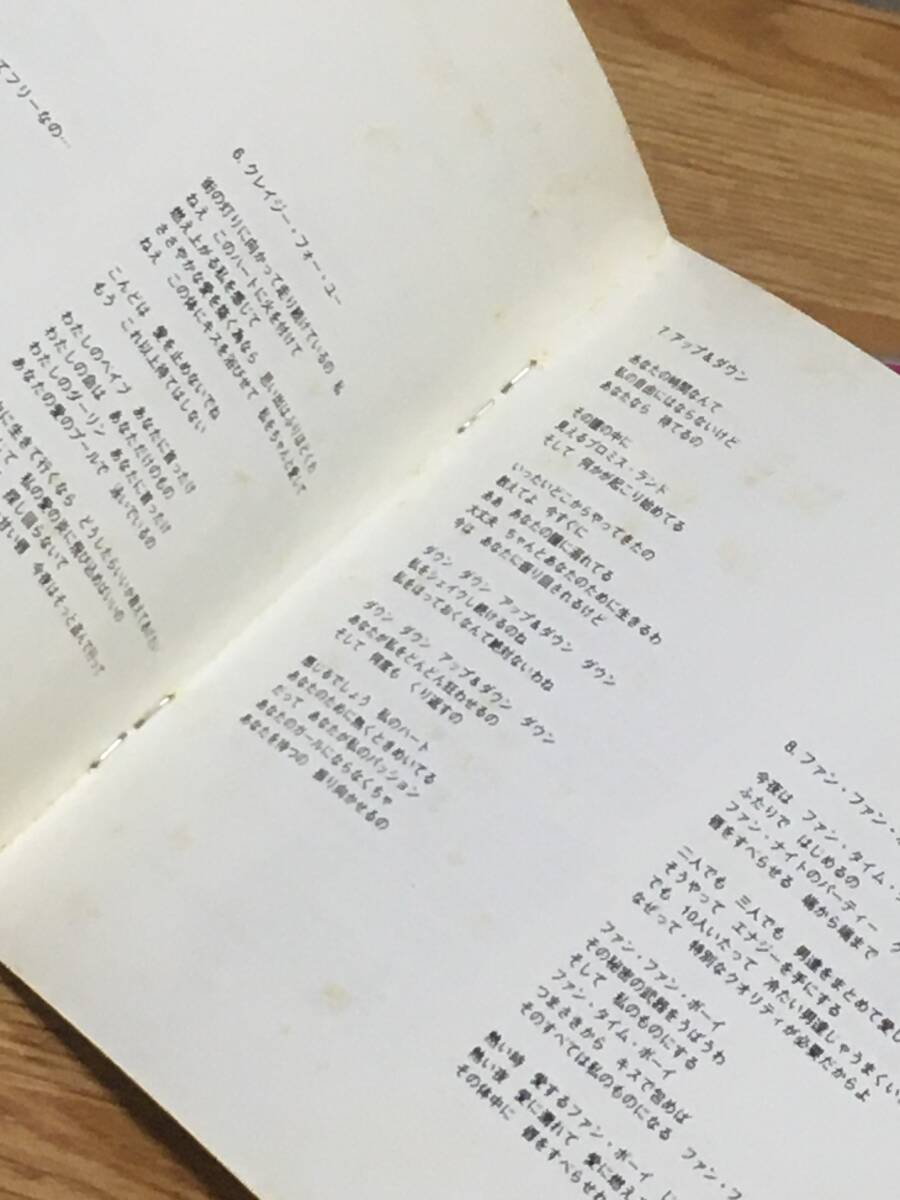 てフリーなの…
6. クレイジー・フォー・ユー
街の灯りに向かって走り続けているの 私
ねえ このハートに火を付けて
燃え上がる私を感じて
ささやかな愛を描く為なら 思い出はふりほどくわ
ねえ この体にキスを浴びせて 私をちゃんと奪って
こんどは 愛を止めないでね
もう これ以上待てはしない
わたしのベイブ あなたに首ったけ
わたしの命は あなただけのもの
わたしのダーリン あなたに首ったけ
あなたの愛のプールで 泳いでいるの
に生きて行くなら どうしたらいいか教えてあげる
して 私の愛の炎に飛び込めばいいの
探し回らないで
甘い唇 今夜はそっと盗んで行って
7. アップ&ダウン
あなたの時間なんて
私の自由にはならないけど
あなたなら 待てるの
その瞳の中に
見えるプロミス・ランド
そして 何かが起こり始めてる
いったいどこからやってきたの
教えてよ 今すぐに
ああ あなたの瞳に溺れてる
大丈夫 ちゃんとあなたのために生きるわ
今は あなたに振り回されるけど
ダウン ダウン アップ&ダウン ダウン
私をシェイクし続けるのね
私をほっておくなんて絶対ないわね
ダウン ダウン アップ&ダウン ダウン
あなたが私をどんどん狂わせるの
そして 何度も くり返すの
感じるでしょう 私のハート
あなたのために熱くときめいてる
だって あなたが私のパッション
あなたのガールにならなくちゃ
あなたを待つの 振り向かせるの
8. ファン・ファン・
今夜は ファン・タイム・
ふたりで はじめるの
ファン・ナイトのパーティー
唇をすべらせる 端から端まで
二人でも 三人でも 男達をまとめて愛し
そうやって エナジーを手にする
でも 10人いたって 冷たい男達じゃうまくい
なぜって 特別なクオリティが必要だからよ
ファン・ファン・ボーイ
その秘密の武器をうばうわ
そして 私のものにする
ファン・タイム・ボーイ ファン・フ
つまさきから キスで包めば
そのすべては私のものになる
熱い時 愛するファン・ボーイ
熱い夜 愛に溺れて 愛に燃え
その体中に 唇をすべらせ